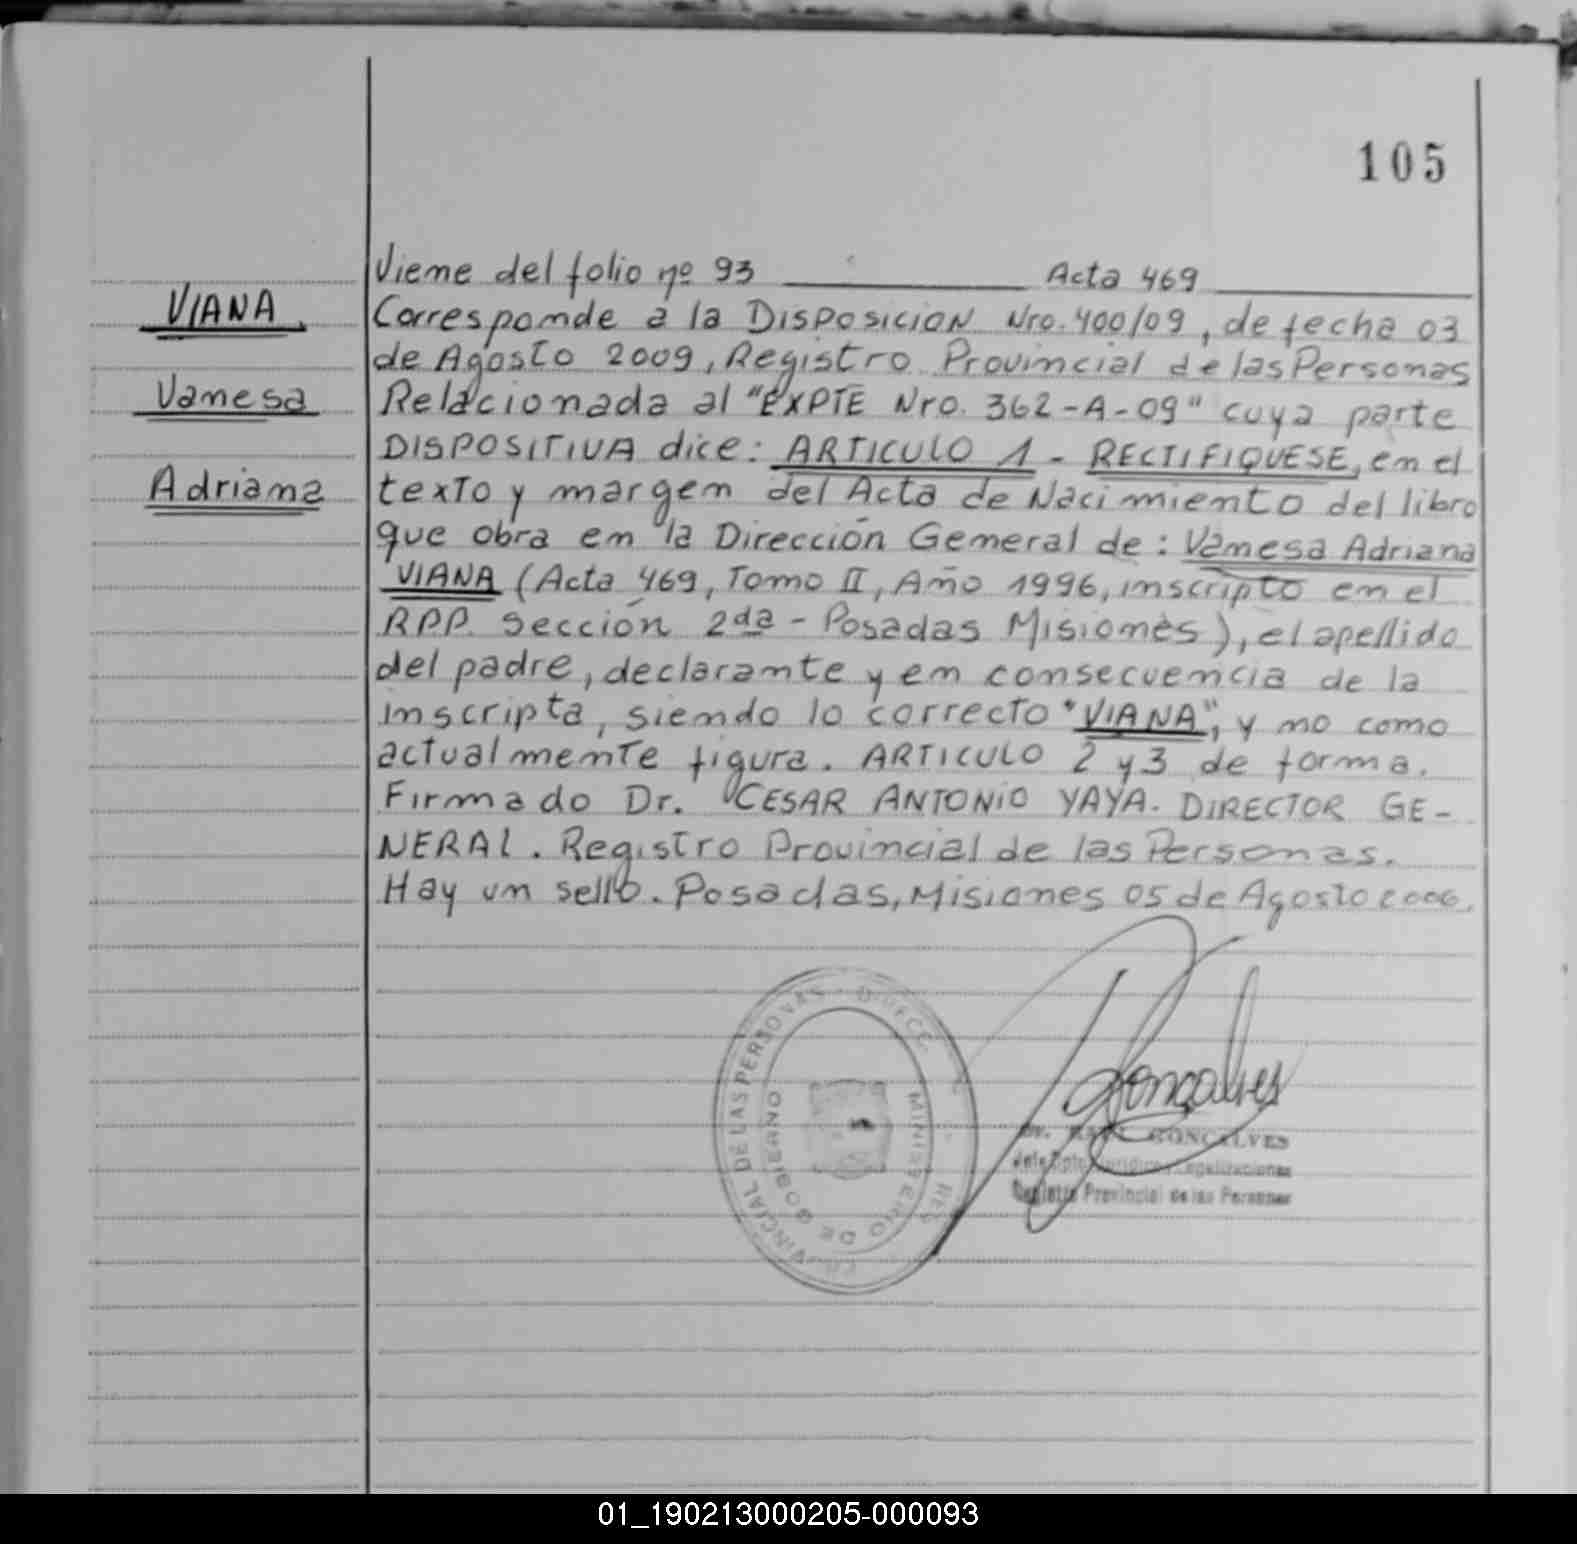 105
Viene del folio nº 93 Acta 469
VIANA
Vanesa
Adriana
Corresponde a la DISPOSICION Nro. 400/09, de fecha 03
de Agosto 2009, Registro Provincial de las Personas
Relacionada al "EXPTE Nro. 362-A-09" cuya parte
DISPOSITIVA dice: ARTICULO 1 - RECTIFIQUESE, en el
texto y margen del Acta de Nacimiento del libro
que obra en la Dirección General de: Vanesa Adriana
VIANA (Acta 469, Tomo II, Año 1996, inscripto en el
RPP. Sección 2da - Posadas Misiones), el apellido
del padre, declarante y en consecuencia de la
inscripta, siendo lo correcto "VIANA", y no como
actualmente figura. ARTICULO 2 y 3 de forma.
Firmado Dr. CESAR ANTONIO YAYA. DIRECTOR GE-
NERAL. Registro Provincial de las Personas.
Hay un sello. Posadas, Misiones 05 de Agosto
VINCIAL DE LAS PERSONAS
MINISTERIO DE GOBIERNO
Goncalves
Dr. GONCALVES
Jefe Dpto Jurídico Legalizaciones
Registro Provincial de las Personas
01_190213000205-000093